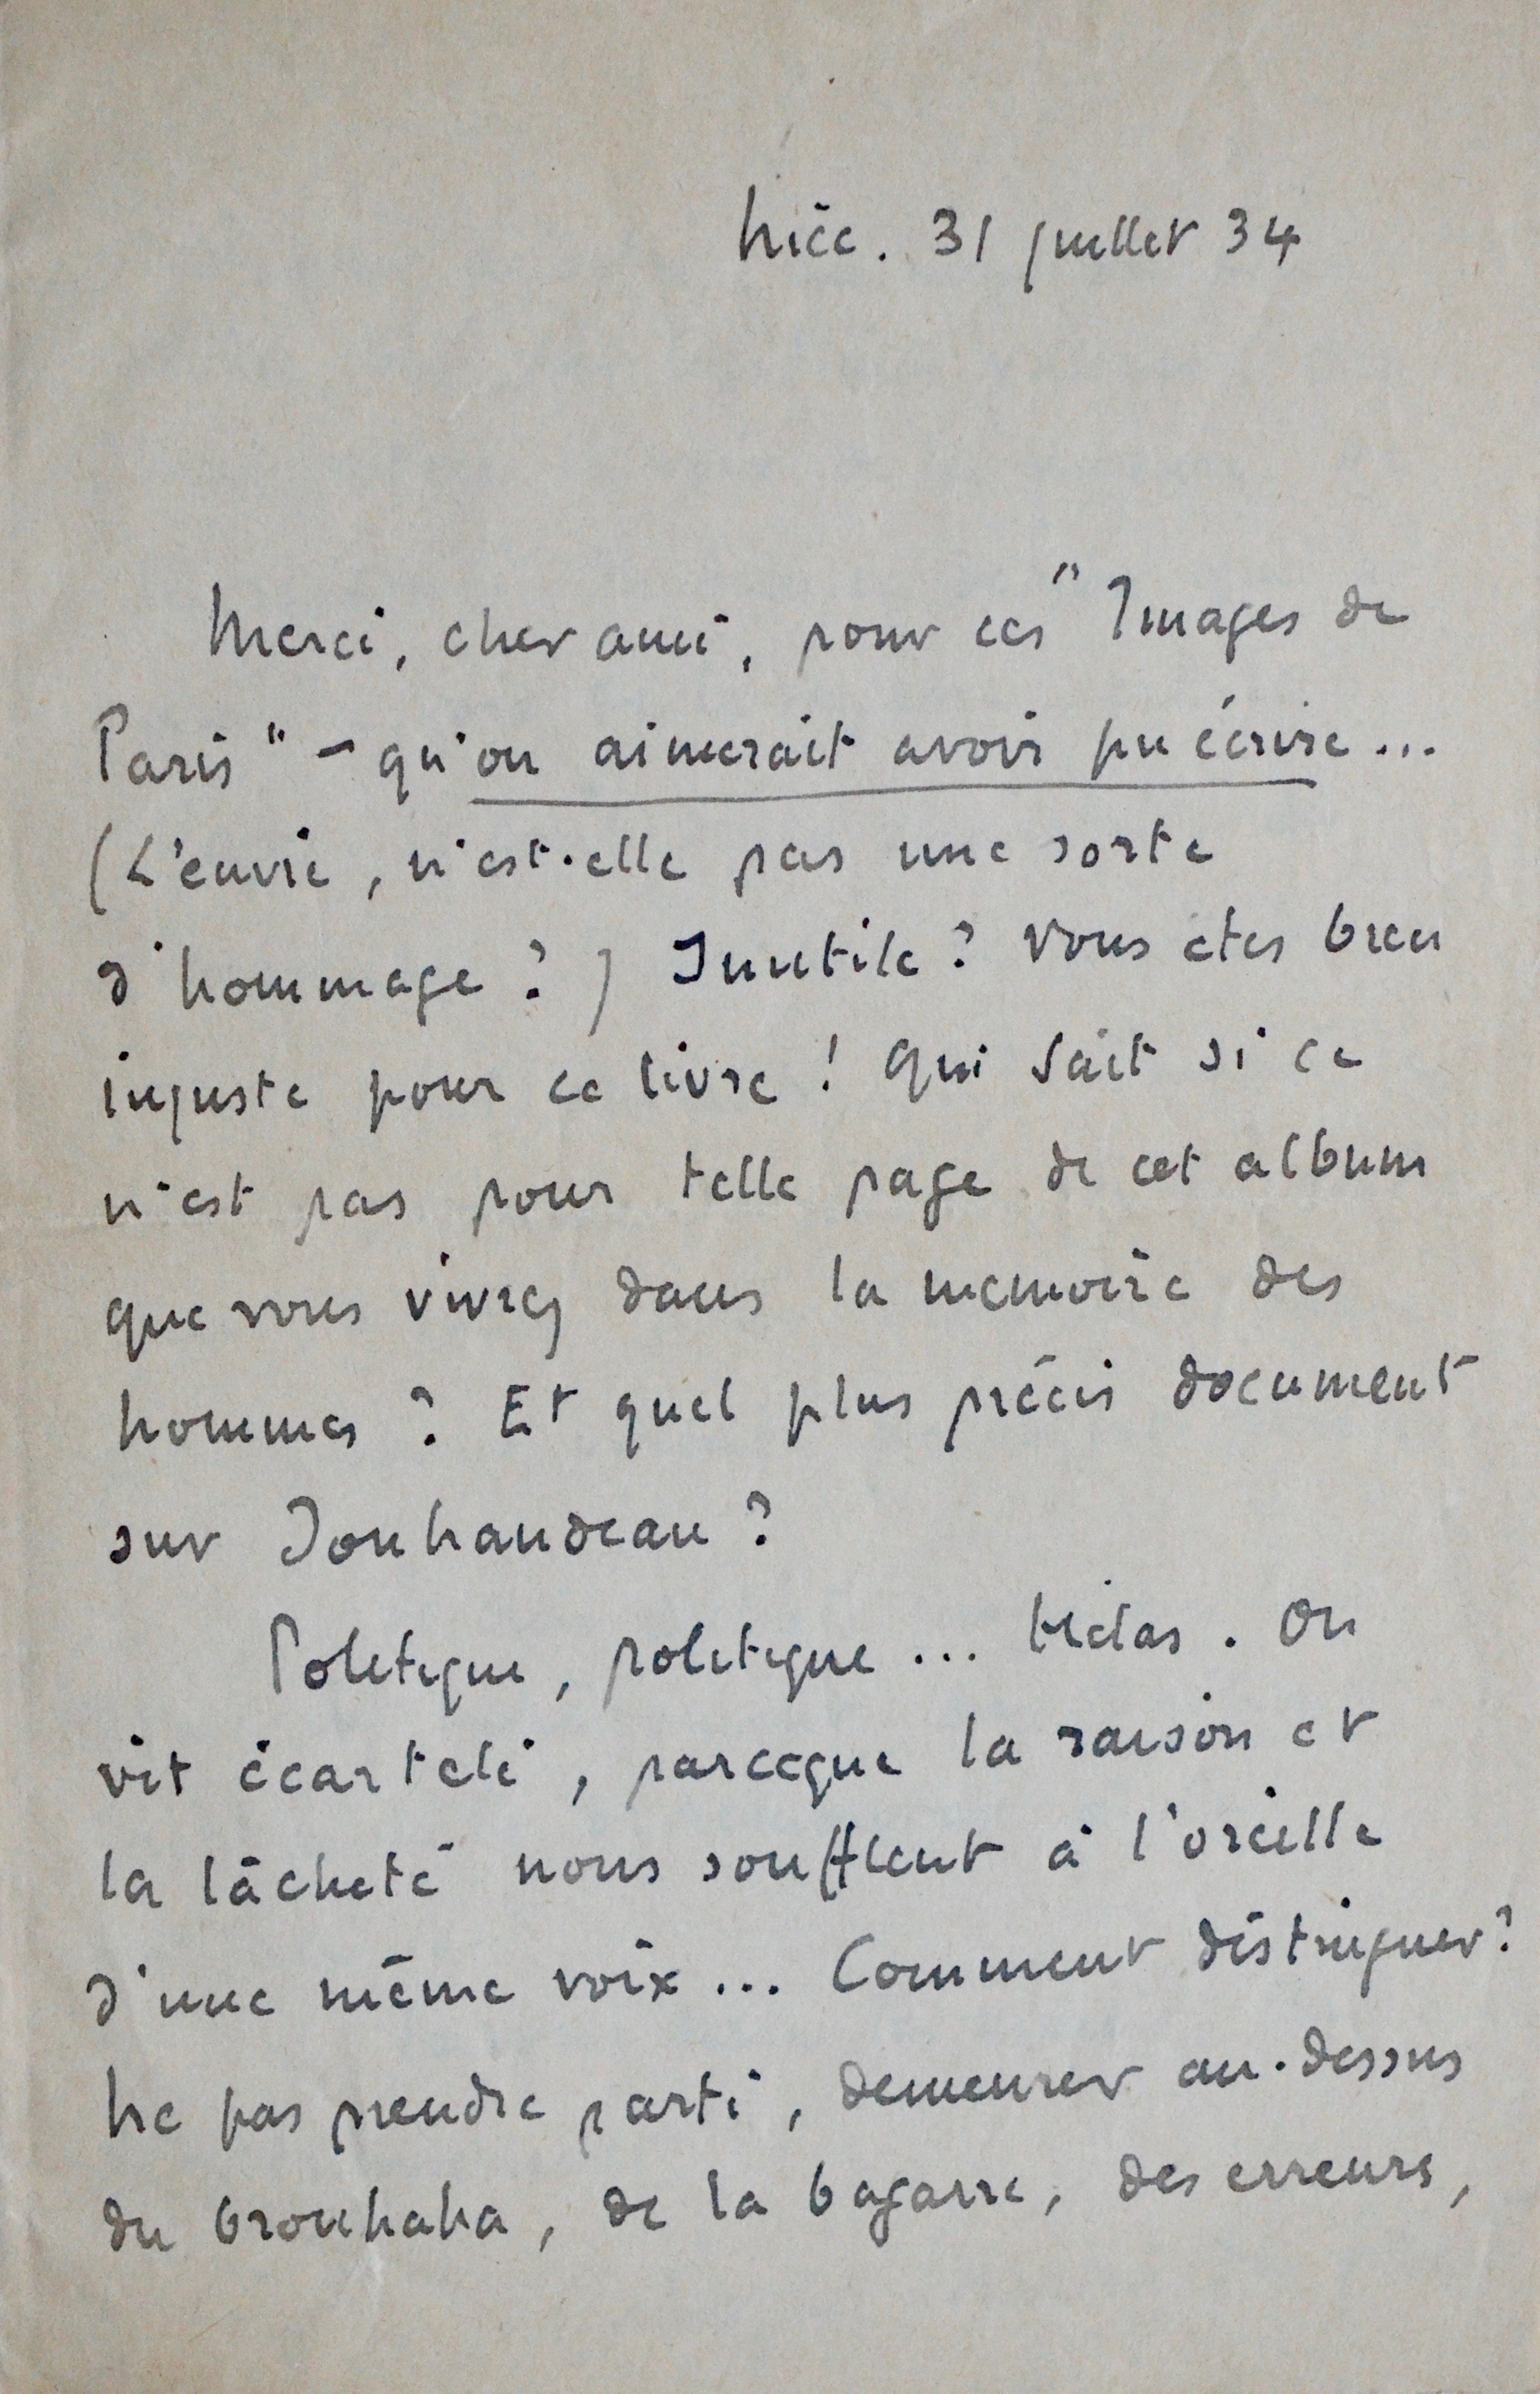 Nice. 31 juillet 34
Merci, cher ami, pour ces "Images de
Paris" – qu'on aimerait avoir pu écrire...
(L'envie, n'est-elle pas une sorte
d'hommage ?) Inutile ? Vous êtes bien
injuste pour ce livre ! Qui sait si ce
n'est pas pour telle page de cet album
que vous vivrez dans la mémoire des
hommes ? Et quel plus précis document
sur Jouhandeau ?
Politique, politique... Hélas. On
vit écartelé, parceque la raison et
la lâcheté nous soufflent à l'oreille
d'une même voix... Comment distinguer ?
Ne pas prendre parti, demeurer au-dessus
du brouhaha, de la bagarre, des erreurs,